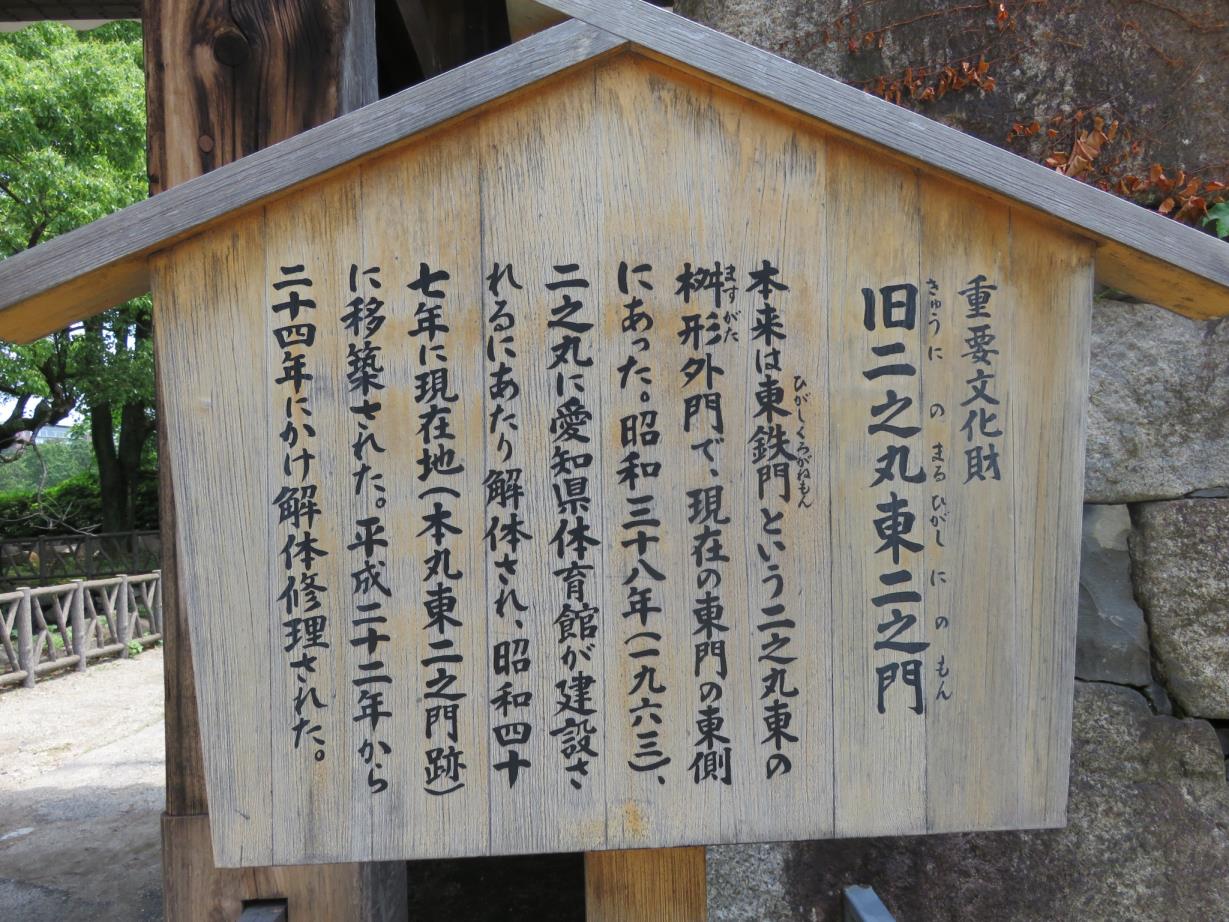 重要文化財
きゅうに の まる ひがし に の もん
旧二之丸東二之門
ひがしくろがねもん
本来は東鉄門という二之丸東の
ますがた
桝形外門で、現在の東門の東側
にあった。昭和三十八年(一九六三)、
二之丸に愛知県体育館が建設さ
れるにあたり解体され、昭和四十
七年に現在地(本丸東二之門跡)
に移築された。平成二十二年から
二十四年にかけ解体修理された。